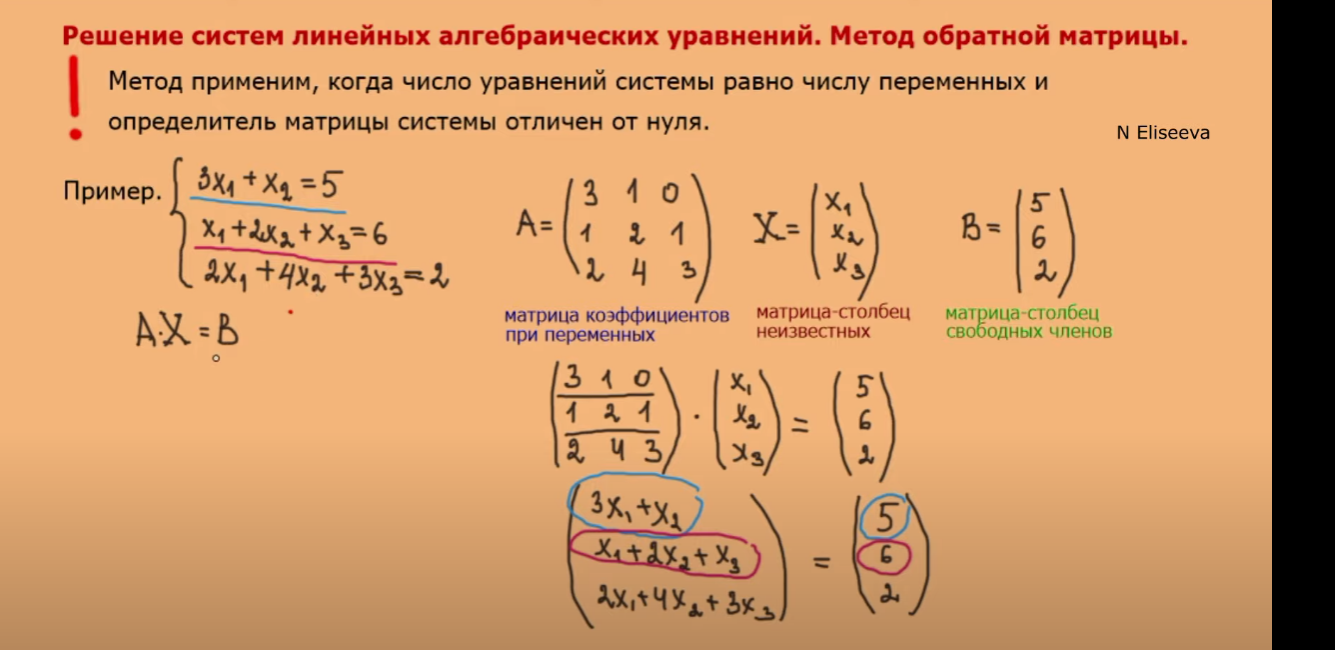 Решение систем линейных алгебраических уравнений. Метод обратной матрицы.
! Метод применим, когда число уравнений системы равно числу переменных и
определитель матрицы системы отличен от нуля.
N Eliseeva
Пример.
3x₁ + x₂ = 5
x₁ + 2x₂ + x₃ = 6
2x₁ + 4x₂ + 3x₃ = 2
A·X = B
A =
3 1 0
1 2 1
2 4 3
матрица коэффициентов
при переменных
X =
x₁
x₂
x₃
матрица-столбец
неизвестных
B =
5
6
2
матрица-столбец
свободных членов
3 1 0 x₁ 5
1 2 1 · x₂ = 6
2 4 3 x₃ 2
3x₁ + x₂ 5
x₁ + 2x₂ + x₃ = 6
2x₁ + 4x₂ + 3x₃ 2